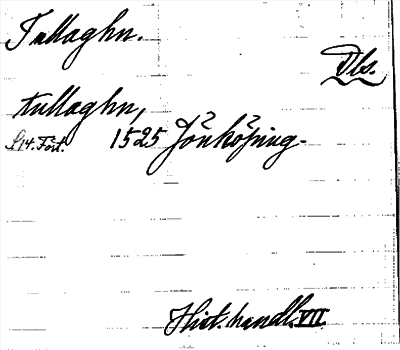 Tullaghn.
Dbs.
tullaghn,
S14. Fört. 1525 Jönköping.
Hist. handl. VII.